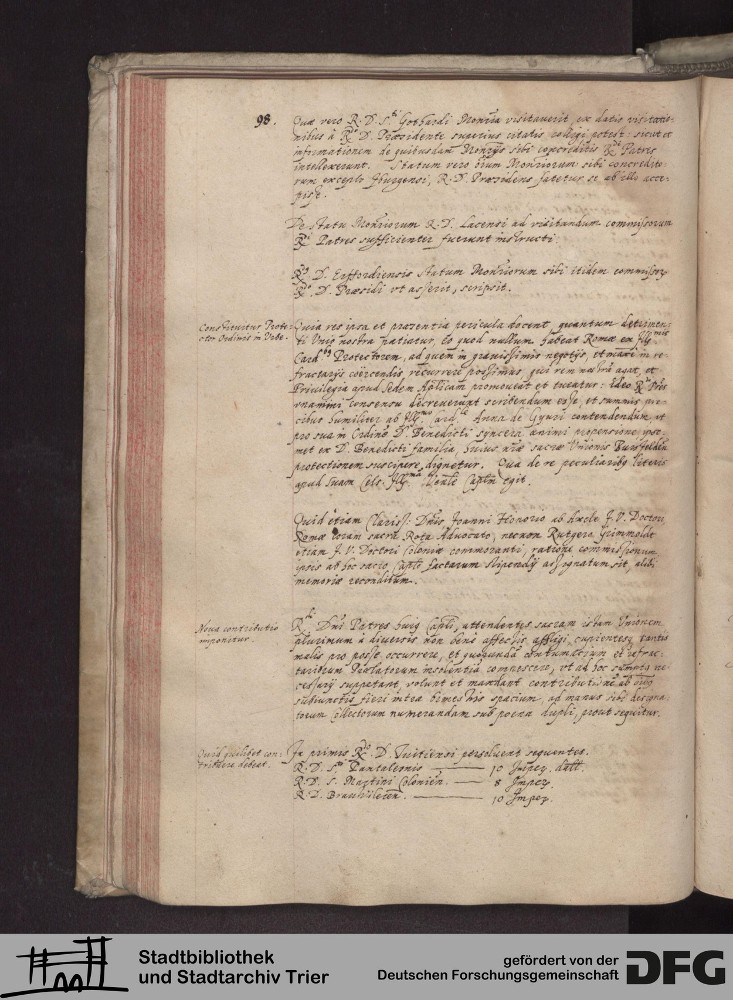 98.
Quae vero R. D. S.ti Gothardi Monria visitaverit, ex datis visitatio-
nibus à R.do D. Praesidente superius citatis colligi potest: sicut et
informationem de quibusdam Monrijs sibi concreditis R.di Patres
intellexerunt. Statum vero oium Monriorum sibi concredito-
rum excepto Iburgensi, R. D. Praesidens fatetur se ab illo acce-
pisse.
De statu Monriorum R. D. Lacensi ad visitandum commissorum
R.di Patres sufficienter fuerunt instructi.
R.dus D. Erffordiensis statum Monriorum sibi itidem commissorum
R.do D. Praesidi vt asserit, scripsit.
Constituitur Prote-
ctor Ordinis in Vrbe.
Quia res ipsa et praesentia pericula docent, quantum detrimen-
ti Vnio nostra patiatur, eo quod nullum habeat Romae ex Ill.mis
Card.bus Protectorem, ad quem in gravissimis negotijs, et maxe in re-
fractarijs coërcendis, recurrere possimus, qui rem nostram agat, et
Privilegia apud Sedem Aplicam promoveat et tueatur: ideo R.di Patres
vnanimi consensu decreverunt scribendum esse, et summis pre-
cibus humiliter ab Ill.mo Card.le Anna de Gyuri contendendum, vt
pro sua in Ordinem D. Benedicti syncera animi propensione, ipse-
met ex D. Benedicti familia, huius nrae sacrae Vnionis Bursfelden
protectionem suscipere dignetur. Qua de re peculiaribus literis
apud suam Cels. Ill.ma Ven.le Caplm egit.
Quid etiam Clariss: Dnis Joanni Honorio ab Axele J. V. Doctori
Romae coram sacra Rota Advocato, necnon Rutgero Grimmoldt
etiam J. V. Doctori Coloniae commoranti, ratione commissionum
ipsis ab hoc sacro Caplo factarum stipendij assignatum sit, alibi
memoriae reconditum.
Nova contributio
imponitur.
R.di Dni Patres huius Capli, attendentes sacram istam Vnionem
plurimum à diversis non bene affectis affligi, cupientes tantis
malis pro posse occurrere, et quorundam contumacium et refrac-
tariorum Praelatorum insolentia compescere, vt ad hoc sumptus ne-
cessarij suppetant, volunt et mandant contributionem ab omnibus
subiunctis fieri intra bimestris spacium, ad manus sibi designa-
torum Collectorum numerandam sub poena dupli, prout sequitur.
Quid quilibet con-
tribuere debeat.
In primis R.do D. Tuitiensi persoluent sequentes.
R. D. S.ti Pantaleonis ——— 10 Imper. dall.
R. D. S. Martini Colonien. —— 8 Imper.
R. D. Brauwileren. ——— 10 Imper.
Stadtbibliothek
und Stadtarchiv Trier
gefördert von der
Deutschen Forschungsgemeinschaft
DFG